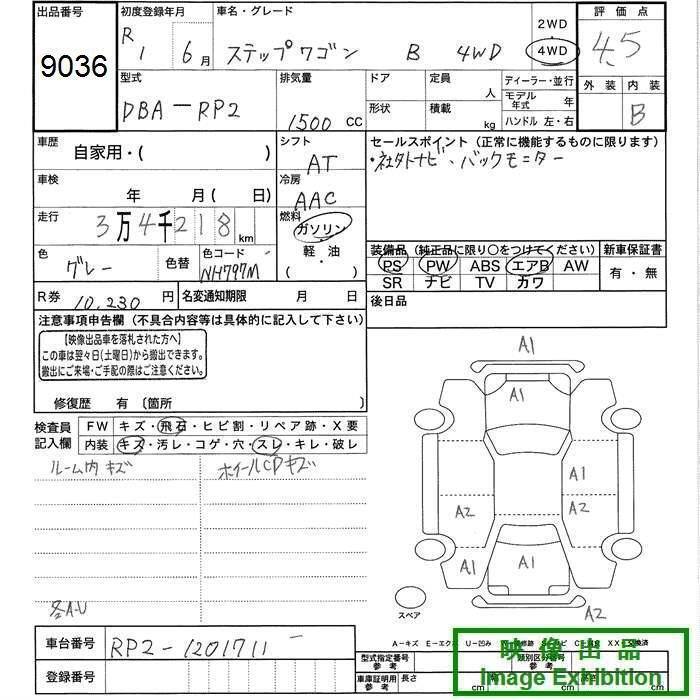 出品番号 初度登録年月 車名・グレード 2WD 評価点
9036 R1 6月 ステップワゴン B 4WD 4WD 4.5
型式 排気量 ドア 定員 人 ディーラー・並行 外装 内装
DBA-RP2 1500cc 形状 積載 kg モデル年式 年 B
ハンドル 左・右
車歴 自家用・( ) シフト AT セールスポイント (正常に機能するものに限ります)
・社外ナビ、バックモニター
車検 年 月(日) 冷房 AAC
走行 3万4千218km 燃料 ガソリン
軽・油
( )
装備品 (純正品に限り○をつけてください) 新車保証書
色 グレー 色替 色コード NH797M PS PW ABS エアB AW 有・無
SR ナビ TV カワ
R券 10,230円 名変通知期限 月 日 後日品
注意事項申告欄 (不具合内容等は具体的に記入して下さい)
【映像出品車を落札された方へ】
この車は翌々日(土曜日)から搬出できます。
搬出にご来場・ご手配の際はご注意ください。
修復歴 有 〔箇所 〕
検査員記入欄 FW キズ・飛石・ヒビ割・リペア跡・X要
内装 キズ・汚レ・コゲ・穴・スレ・キレ・破レ
ルーム内 キズ ホイールCDキズ
各A-U
A1
A1
A1
A2 A2
A1 A1
A2
スペア
車台番号 RP2-1201711
登録番号
A-キズ E-エク U-凹み
型式指定番号 参考 類別区分番号 参考
車庫証明用 参考 長さ cm cm cm
映像出品
Image Exhibition